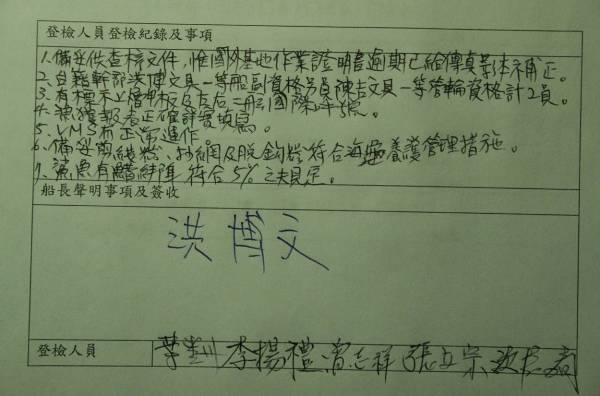 登檢人員登檢紀錄及事項
1.備妥供查核文件,惟國外基地作業證明書逾期已給傳真影本補正。
2.台籍幹部洪博文具一等船副資格另員陳吉文具一等管輪資格計2員。
3.有標示上層甲板及左右二舷國際呼號。
4.漁獲報表正確計實填寫。
5.VMS有正常運作。
6.備妥剪線器、抄網及脱鉤器符合海龜養護管理措施。
7.鯊魚有鰭綁 符合5%之規定。
船長聲明事項及簽收
洪博文
登檢人員
李楊禮 曾志祥 張立宗